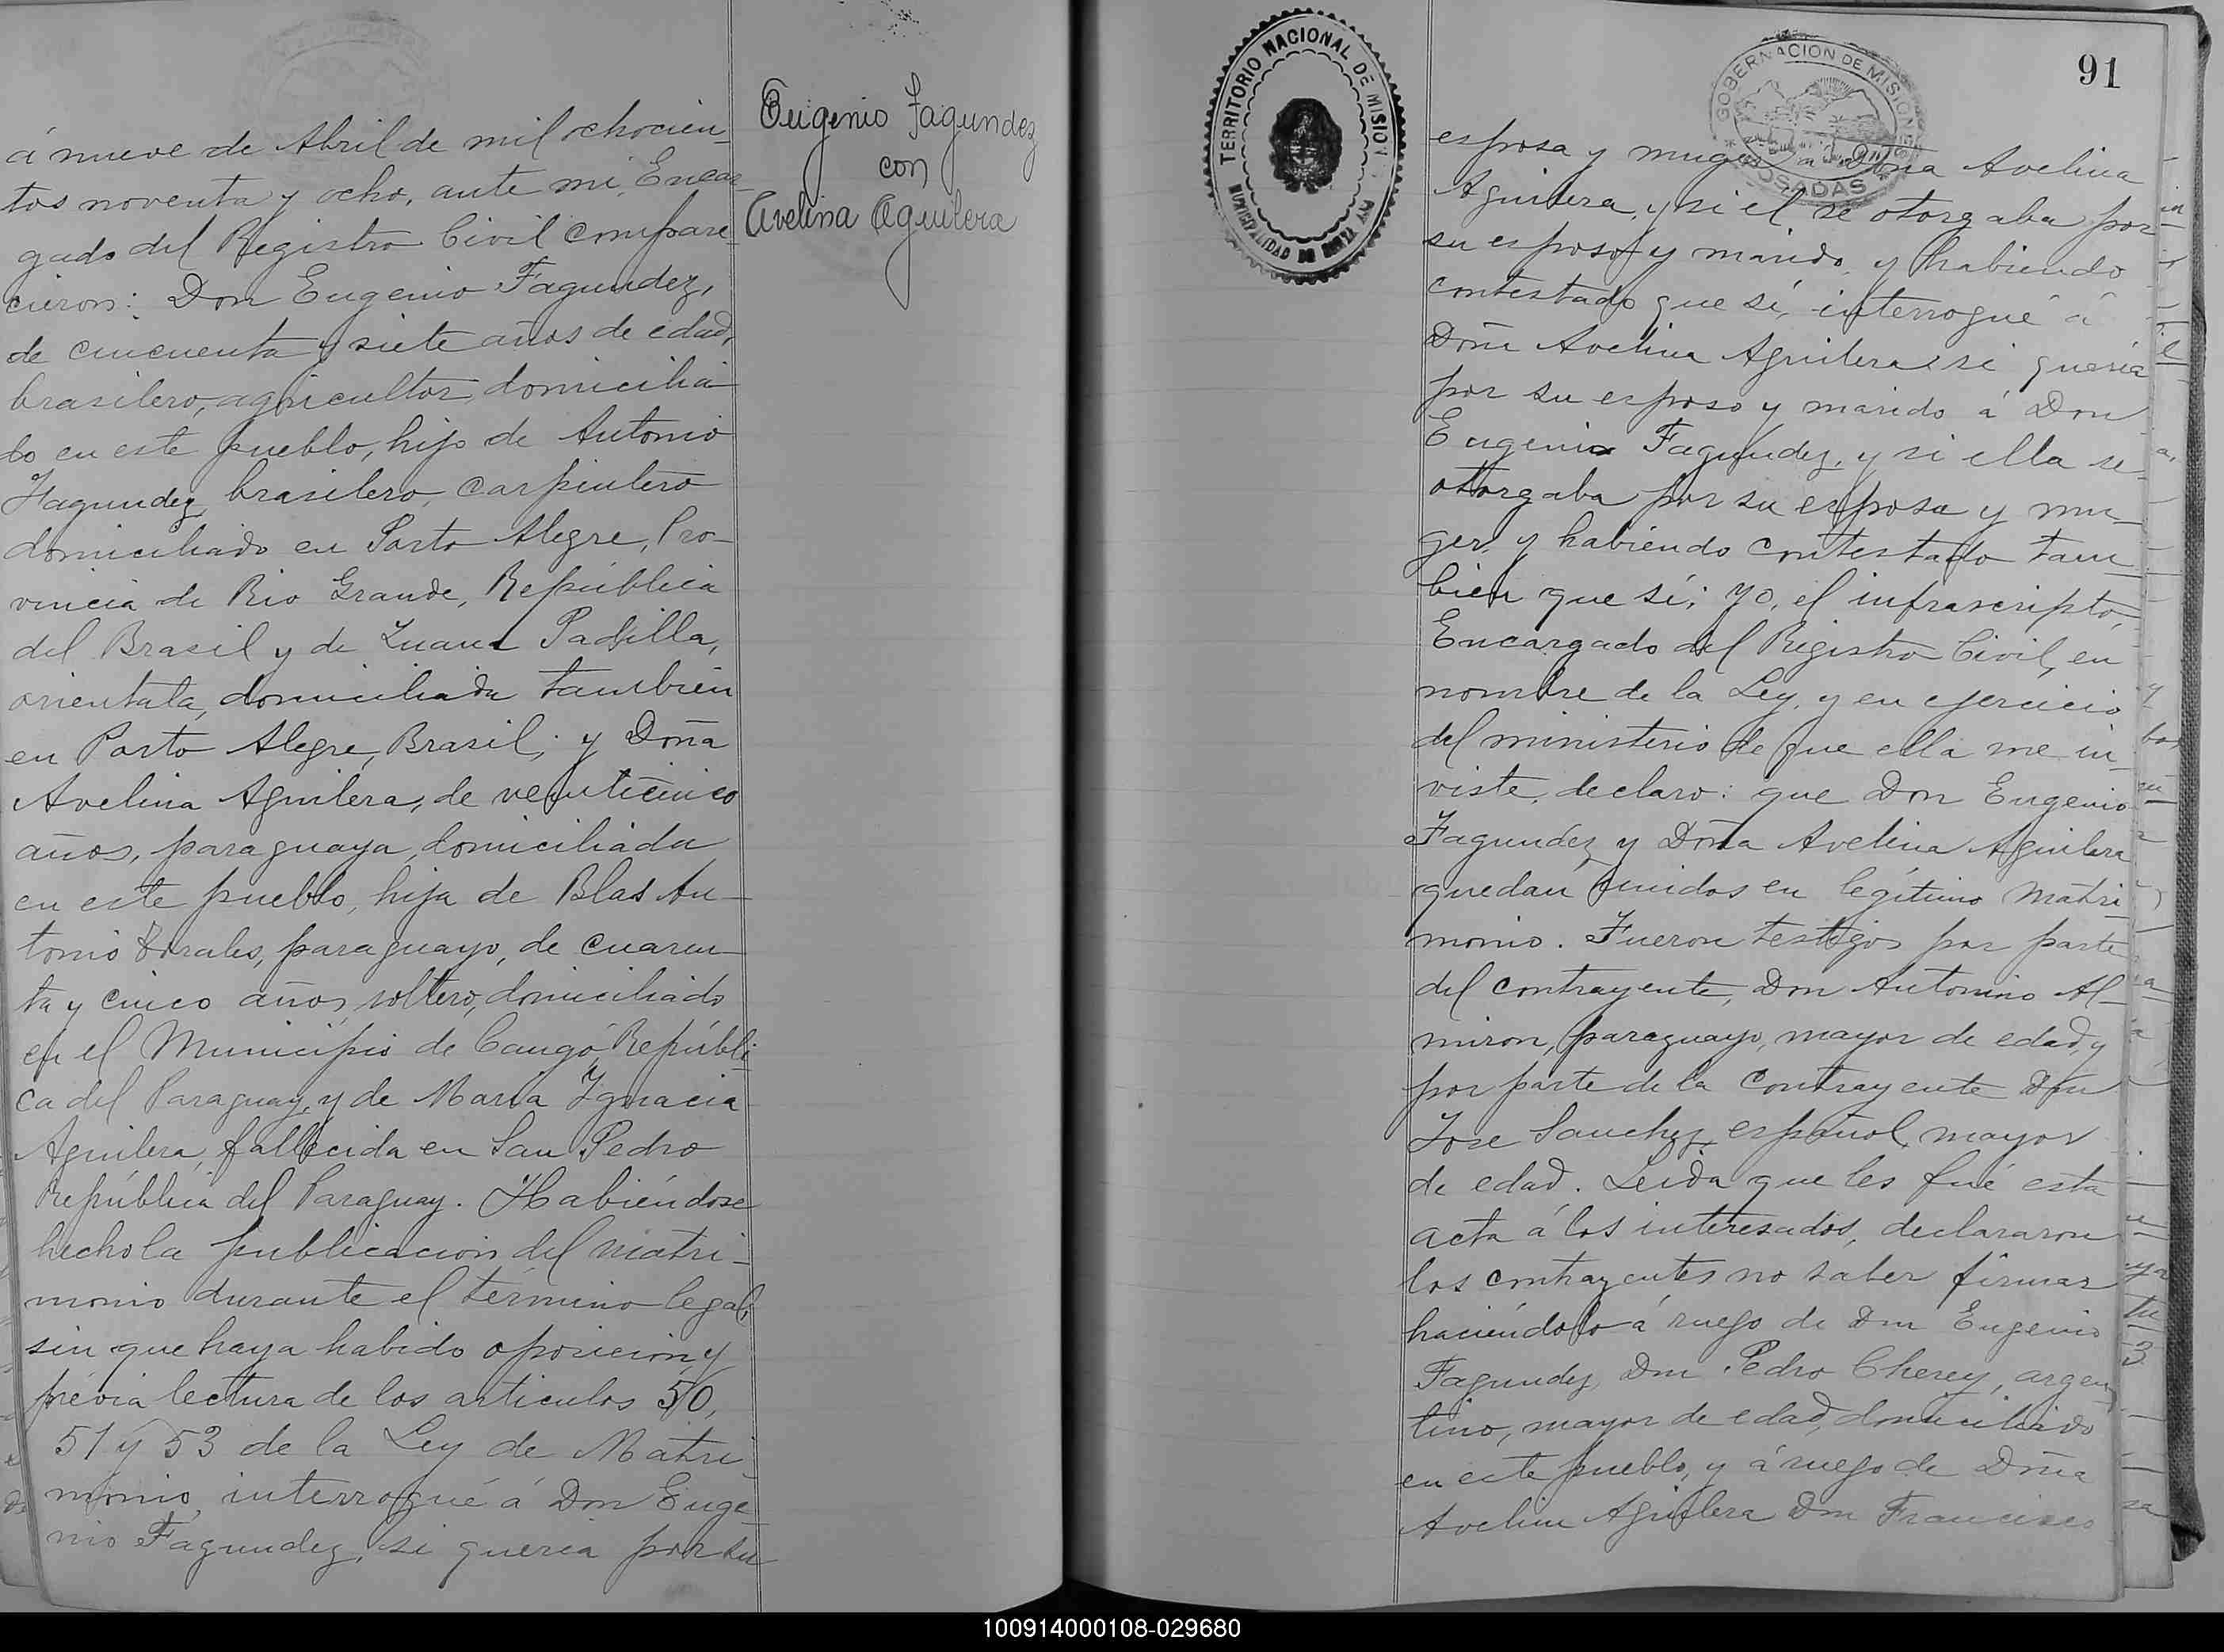 á nueve de Abril de mil ochocien-
tos noventa y ocho, ante mi, Encar-
gado del Registro Civil compare-
cieron: Don Eugenio Fagundez,
de cincuenta y siete años de edad,
brasilero, agricultor, domicilia-
do en este pueblo, hijo de Antonio
Fagundez, brasilero, carpintero
domiciliado en Porto Alegre, Pro-
vincia de Rio Grande, República
del Brasil y de Juana Padilla,
orientala, domiciliada tambien
en Porto Alegre, Brasil; y Doña
Avelina Aguilera, de veinticinco
años, paraguaya, domiciliada
en este pueblo, hija de Blas An-
tonio paraguayo, de cuaren-
ta y cinco años, soltero, domiciliado
en el Municipio de Caugó, Repúbli-
ca del Paraguay, y de Maria Ygnacia
Aguilera, fallecida en San Pedro
República del Paraguay. Habiéndose
hecho la publicacion del matri-
monio durante el término legal,
sin que haya habido oposicion, y
prévia lectura de los articulos 50,
51 y 53 de la Ley de Matri-
monio, interrogué á Don Euge-
nio Fagundez, si queria por su
Eugenio Fagundez
con
Avelina Aguilera
TERRITORIO NACIONAL DE MISIONES
MUNICIPALIDAD DE
GOBERNACION DE MISIONES
POSADAS
91
esposa y muger á Doña Avelina
Aguilera, y si él se otorgaba por
su esposo y marido, y habiendo
contestado que sí, interrogué á
Doña Avelina Aguilera si queria
por su esposo y marido á Don
Eugenio Fagundez, y si ella se
otorgaba por su esposa y mu-
ger, y habiendo contestado tam-
bien que sí; yo, el infrascripto,
Encargado del Registro Civil, en
nombre de la Ley, y en ejercicio
del ministerio de que ella me in-
viste, declaro: que Don Eugenio
Fagundez y Doña Avelina Aguilera
quedan unidos en legítimo matri-
monio. Fueron testigos por parte
del contrayente, Don Antonino Al-
miron, paraguayo, mayor de edad, y
por parte de la contrayente Don
Jose Sanchez, español, mayor
de edad. Leida que les fué esta
acta á los interesados, declararon
los contrayentes no saber firmar
haciéndolo á ruego de Don Eugenio
Fagundez, Don Pedro Cherey, argen-
tino, mayor de edad, domiciliado
en este pueblo, y á ruego de Doña
Avelina Aguilera Don Francisco
100914000108-029680